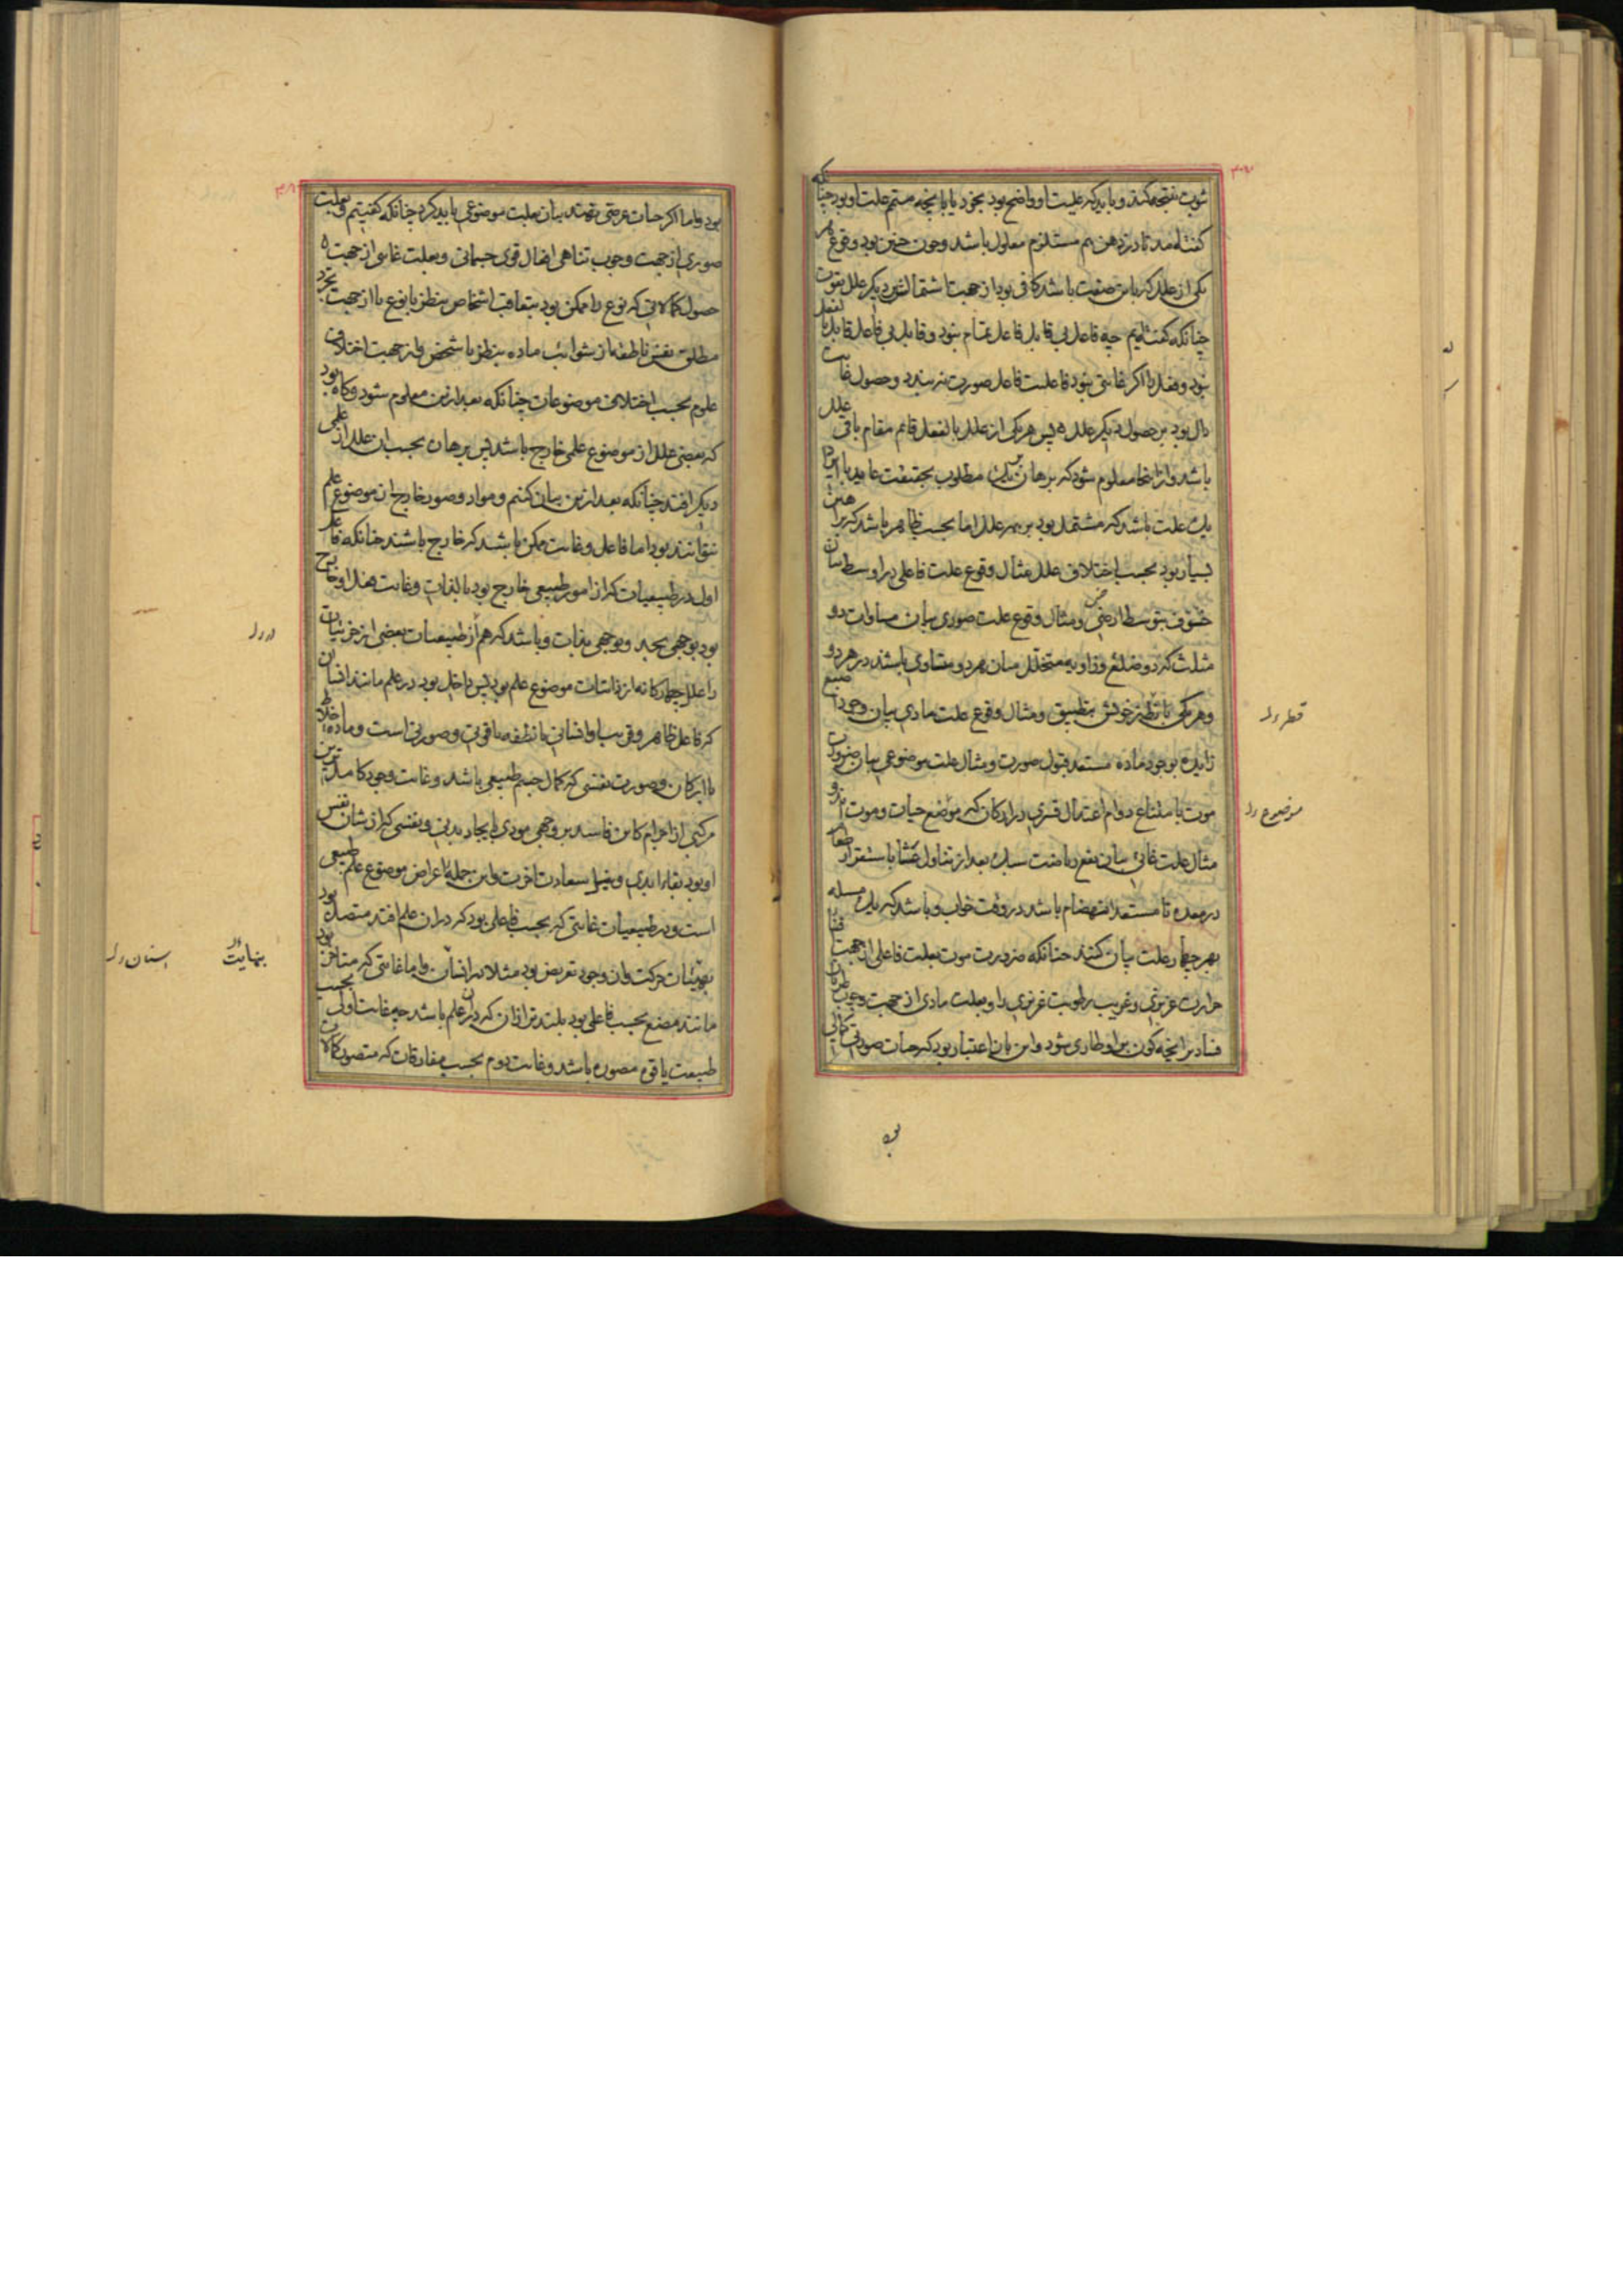 ثبوت نتیجه کند و باید که علیت او واضح بود بخود یا بآنچه متمم علت او بود چنانکه
گفته آمد تا در ذهن هم مستلزم معلول باشد و چون چنین بود وقوع هر
یکی از علل که باین صفت باشد کافی بود از جهت اشتمالش بر دیگر علل بقوت
چنانکه گفته‌ایم چه فاعل بی قابل فاعل تمام نبود و قابل بی فاعل قابل بالفعل
نبود و فعل را اگر غایتی نبود فاعلیت فاعل صورت نبندد و حصول غایت
دال بود بر حصول دیگر علل پس هر یکی از علل بالفعل قائم مقام باقی علل
باشد و از اینجا معلوم شود که برهان بر یک مطلوب بحقیقت عاید با ایراد
یک علت باشد که مشتمل بود بر همه علل اما بحسب ظاهر باشد که برهین
بسیار بود بحسب اختلاف علل مثال وقوع علت فاعلی در اوسط بیان
خسوف بتوسط ارض و مثال وقوع علت صوری بیان مساوات دو
مثلث که دو ضلع و زاویه متخلل میان هر دو متساوی باشند در هر دو
و هر یکی با نظیر خویش منطبق و مثال وقوع علت مادی بیان وجود اصبع
زایده بوجود ماده مستعد قبول صورت و مثال علت موضوعی بیان ضرورت
موت بامتناع دوام اعتدال قسری در ارکان که موضع حیات و موت اند و
مثال علت غائی بیان نفع ریاضت سبک بعد از تناول عشا باستقرار طعام
در معده تا مستعد انهضام باشد در وقت خواب و باشد که یک مسئله
بهر چهار علت بیان کنند چنانکه ضرورت موت بعلت فاعلی از جهت فنا
حرارت غریزی و غریب رطوبت غریزی را و بعلت مادی از جهت وجوب طریان
فساد بر آنچه کون بر او طاری شود و این بآن اعتبار بود که حیات صورتی کمالی
قطر
موضوع
بود و اما اگر حیات عرضی نهند بیان بعلت موضوعی باید کرد چنانکه گفتیم و بعلت
صوری از جهت وجوب تناهی افعال قوی جسمانی و بعلت غائی از جهت
حصول کمالاتی که نوع را ممکن بود بتعاقب اشخاص بنظر با نوع یا از جهت تجرد
مطلق نفس ناطقه از شوائب ماده بنظر با شخص و از جهت اختلاف
علوم بحسب اختلاف موضوعات چنانکه بعد ازین معلوم شود و گاه بود
که بعضی علل از موضوع علمی خارج باشد پس برهان بحسب آن علل از علمی
دیگر افتد چنانکه بعد ازین بیان کنیم و مواد و صور خارج از موضوع علم
نتوانند بود اما فاعل و غایت ممکن باشد که خارج باشند چنانکه فاعل
اول در طبیعیات که از امور طبیعی خارج بود بالذات و غایت فعل او خارج
بود بوجهی بحد و بوجهی بذات و باشد که هم از طبیعیات بعضی از جزئیات
را علل چهارگانه از ذاتیات موضوع علم بود پس داخل بود در علم مانند انسان
که فاعل ظاهر و قریب او انسانی یا نطفه یا قوتی و صورتی است و ماده اخلاط
یا ارکان و صورت نفسی که کمال جسم طبیعی باشد و غایت وجود کاملترین
مرکبی از اجرام کاین فاسد بر وجهی مودی بایجاد بدنی و نفسی که از شان نفس
او بود بقاء ابدی و نیل سعادت آخرت و این جمله از اعراض موضوع علم طبیعی
است و در طبیعیات غایتی که بحسب فاعلی بود که در آن علم افتد متصل بود
مانند مصنع بحسب فاعلی بود بلندتر از آن که در آن علم باشد چه غایت اولی بحسب
طبیعت یا قوه مصوره باشد و غایت دوم بحسب مفارقات که متصور کمالات
بنهایت